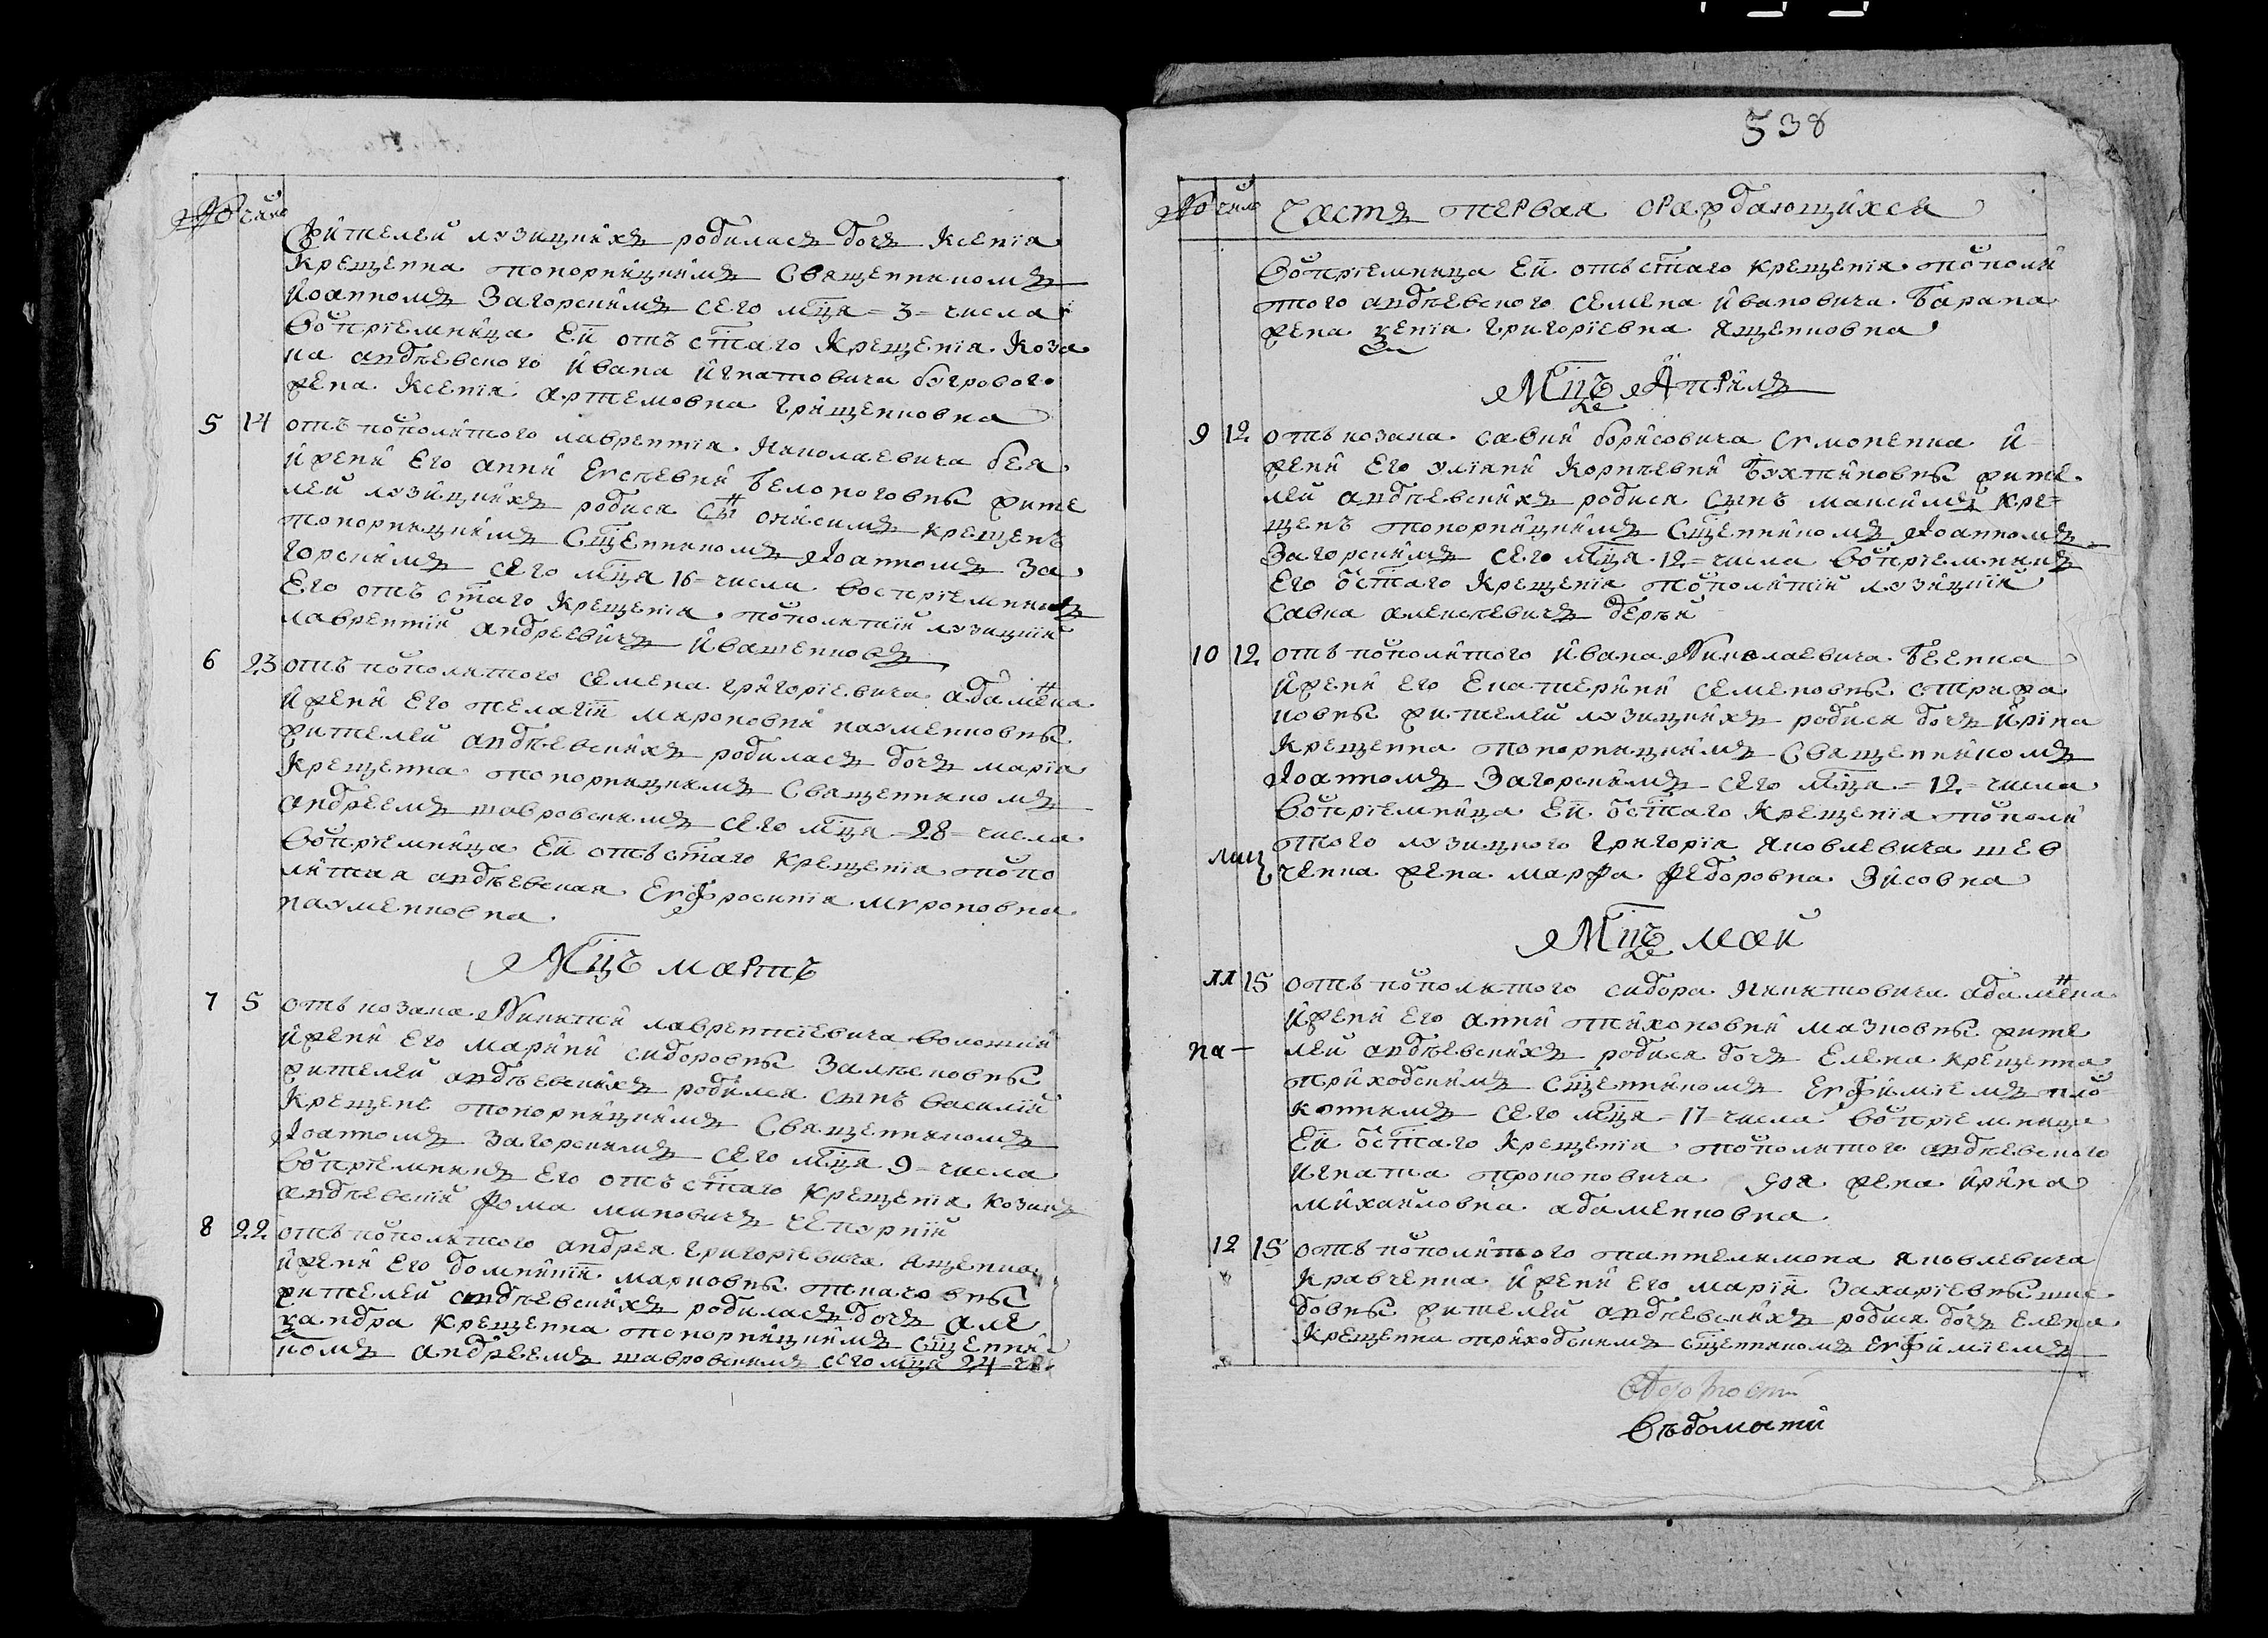 № число
жителей лузицкихъ родилась дочь Ксенїя
Крещенна топорницкимъ Священникомъ
Іоанномъ Загорскимъ сего мца =3= числа
Воспрїемница Ей отъ стаго Крещенїя Коза
ка андрѣевского Ивана Игнатовича бугрового
жена Ксенїя артемовна Грищенковна
5 14 отъ посполитого лаврентїя Николаевича бея
и жени Его анни Евсѣевни Белоноговны жите
лей лузицкихъ родися сынъ онисимъ крещенъ
топорницкимъ Сщенникомъ Іоанномъ За
горскимъ сего мца 16= числа воспрїемникъ
Его отъ стаго Крещенїя посполитїй лузицкїй
лаврентїй андреевичъ Иващенковъ
6 23 отъ посполитого семена григорїевича адаменка
и жени Его пелагїи мироновни науменковны
жителей андрѣевскихъ родилась дочь марїя
Крещенна топорницкимъ Священникомъ
андреемъ шавровскимъ сего мца =28= числа
Воспрїемница Ей отъ стаго Крещенїя поспо
литая андрѣевская Евфросинїя мѵроновна
науменковна
Мцъ мартъ
7 5 отъ козака Никити лаврентїевича
и жени Его марини сидоровны Залѣсновны
жителей андрѣевскихъ родился сынъ василїй
Крещенъ топорницкимъ Священникомъ
Іоанномъ Загорскимъ сего мца 9= числа
Воспрїемникъ Его отъ стаго Крещенїя козакъ
андрѣевскїй Фома миновичъ чепурнїй
8 22 отъ посполитого андрея григорїевича ященка
и жени Его домникїи марковны ткаче вны
жителей андрѣевскихъ родилась дочь але
ѯандра крещенна топорницкимъ Сщенни
комъ андреемъ шавровскимъ сего мца 24=
538
№ число Часть первая о раждающихся
Воспрїемница Ей отъ стаго крещенїя посполи
того андрѣевского семена Ивановича барана
жена ѯенїя григорїевна Ященковна
Мцъ Априль
9 12 отъ козака савки борисовича симоненка и
жени Его улїани Корнѣевни бухтияновны жите
лей андрѣевскихъ родися сынъ максимъ Кре=
щенъ топорницкимъ Сщенникомъ Іоанномъ
Загорскимъ сего мца 12= числа воспрїемникъ
Его от стаго Крещенїя посполитїй лузицкїй
савка алексѣевичъ
10 12 отъ посполитого Ивана Николаевича беенка
и жени Его Екатерини семеновны стрижа
ковны жителей лузицкихъ родися дочь ирїна
Крещенна топорницкимъ Священникомъ
Іоанномъ Загорскимъ сего мца =12= числа
Воспрїемница Ей от стаго Крещенїя посполи
того лузицкого григорїя яковлевича шев
ченка жена марфа Федоровна Зисовна
Мцъ май
11 15 отъ посполитого сидора Никитовича адаменка
и жени Его анни тихоновни мазковны жите
лей андрѣевскихъ родися дочь Елена крещенна
приходскимъ сщенникомъ Евфимїемъ
сего мца =17= числа воспрїемница
Ей от стаго Крещенїя посполитого андрѣевского
игната прокоповича жена ирина
михайловна адаменковна
12 15 отъ посполитого пантелимона яковлевича
Кравченка и жени Его марїи Захарїевны
довны жителей андрѣевскихъ родися дочь Елена
Крещенна приходскимъ сщенникомъ Евфимїемъ
вѣдомости